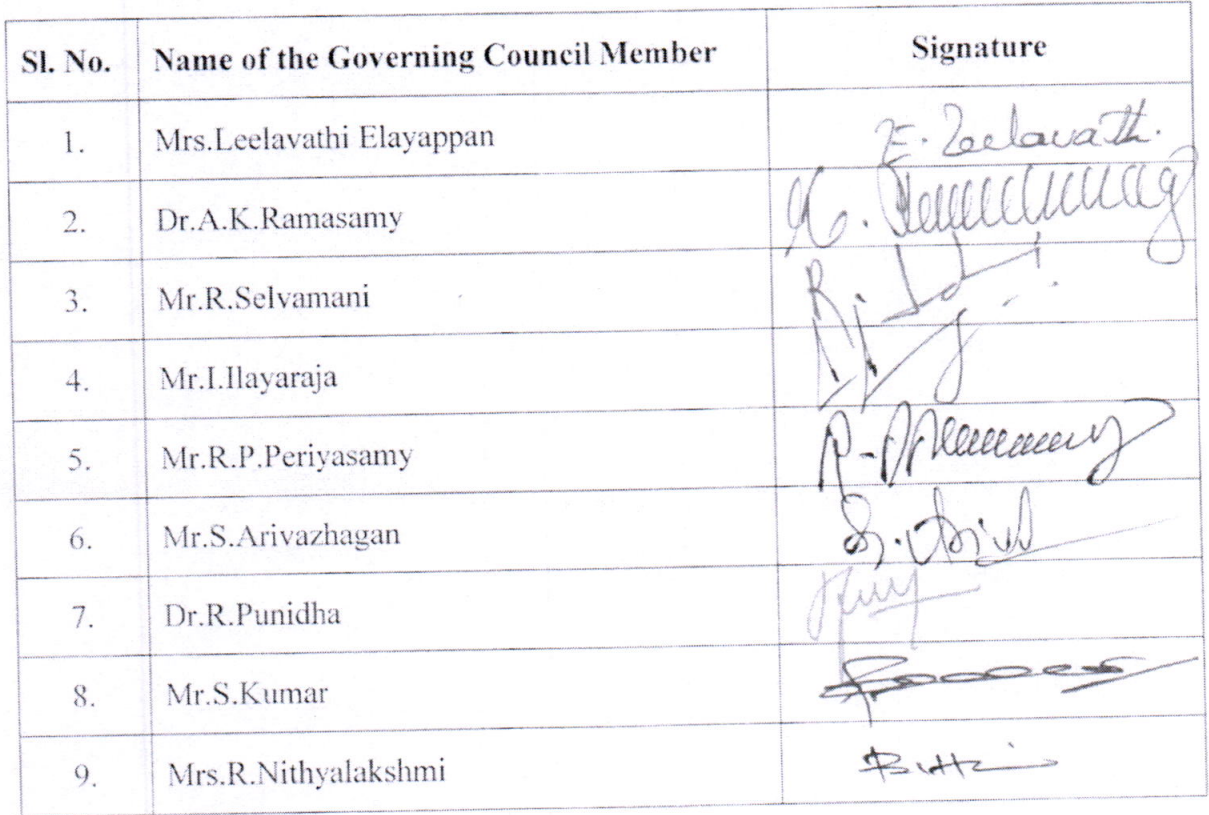 Sl. No. Name of the Governing Council Member Signature
1. Mrs.Leelavathi Elayappan E. Leelavath.
2. Dr.A.K.Ramasamy
3. Mr.R.Selvamani
4. Mr.I.Ilayaraja
5. Mr.R.P.Periyasamy
6. Mr.S.Arivazhagan
7. Dr.R.Punidha
8. Mr.S.Kumar
9. Mrs.R.Nithyalakshmi